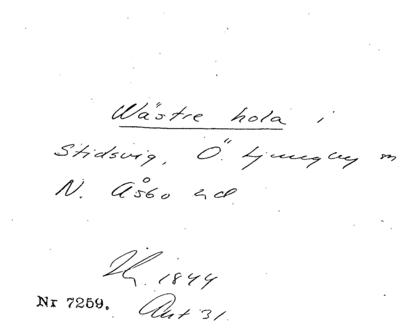 Wästre hola i
Stidsvig, Ö. Ljungby sn
N. Åsbo hd
1844
Nr 7259. Akt 31.